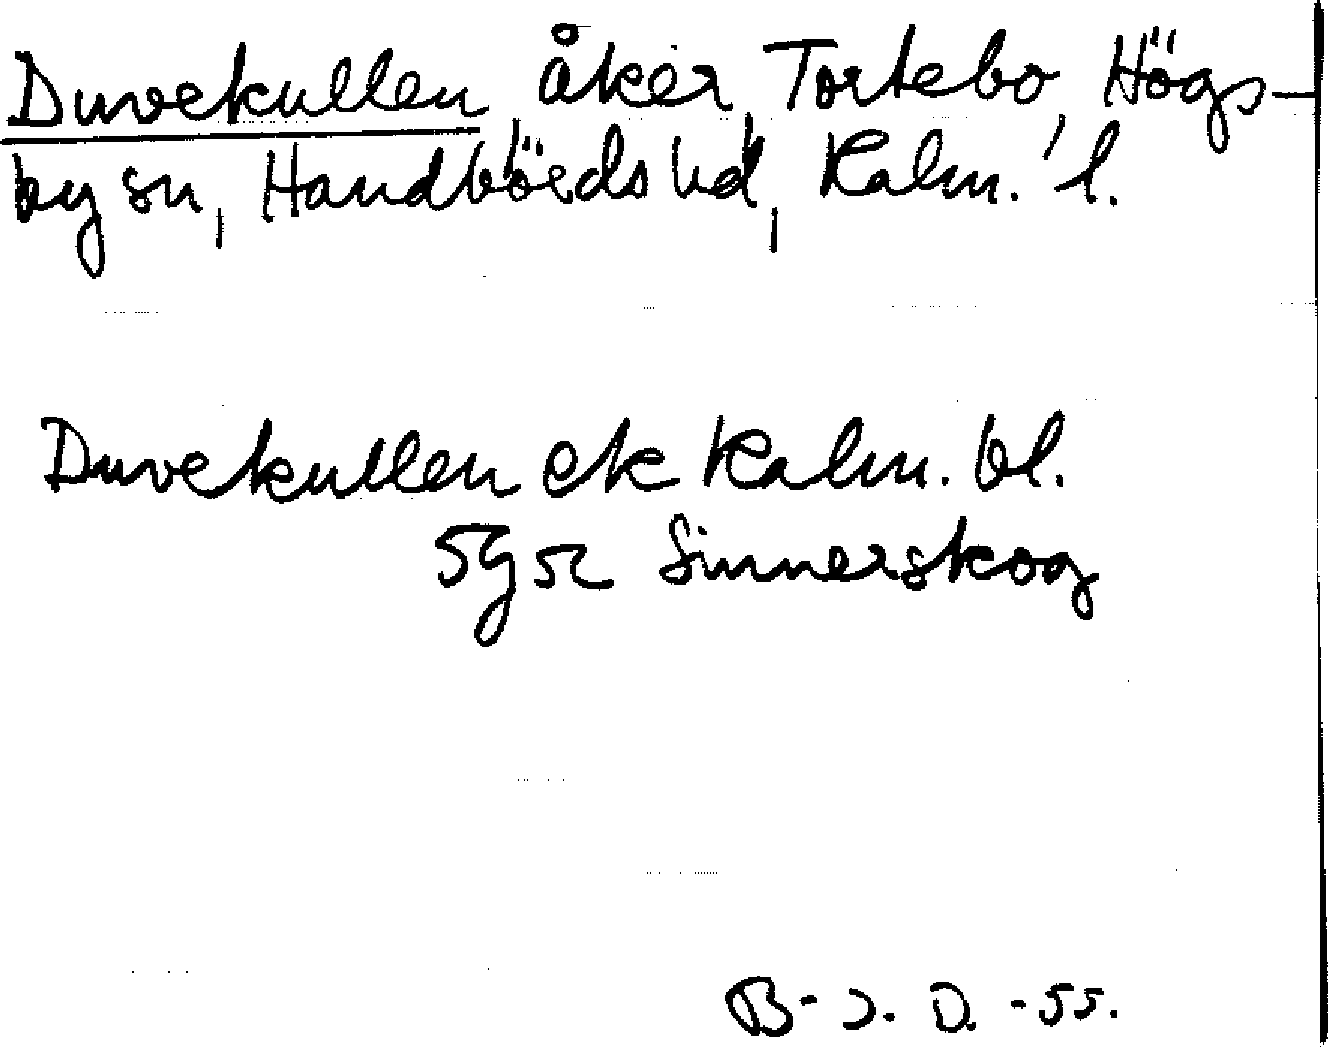 Duvekullen åker, Tortebo, Högs-
by sn, Handbörds hd, Kalm. l.
Duvekullen ek Kalm. bl.
5g52 Sinnerskog
B-J. D. -55.